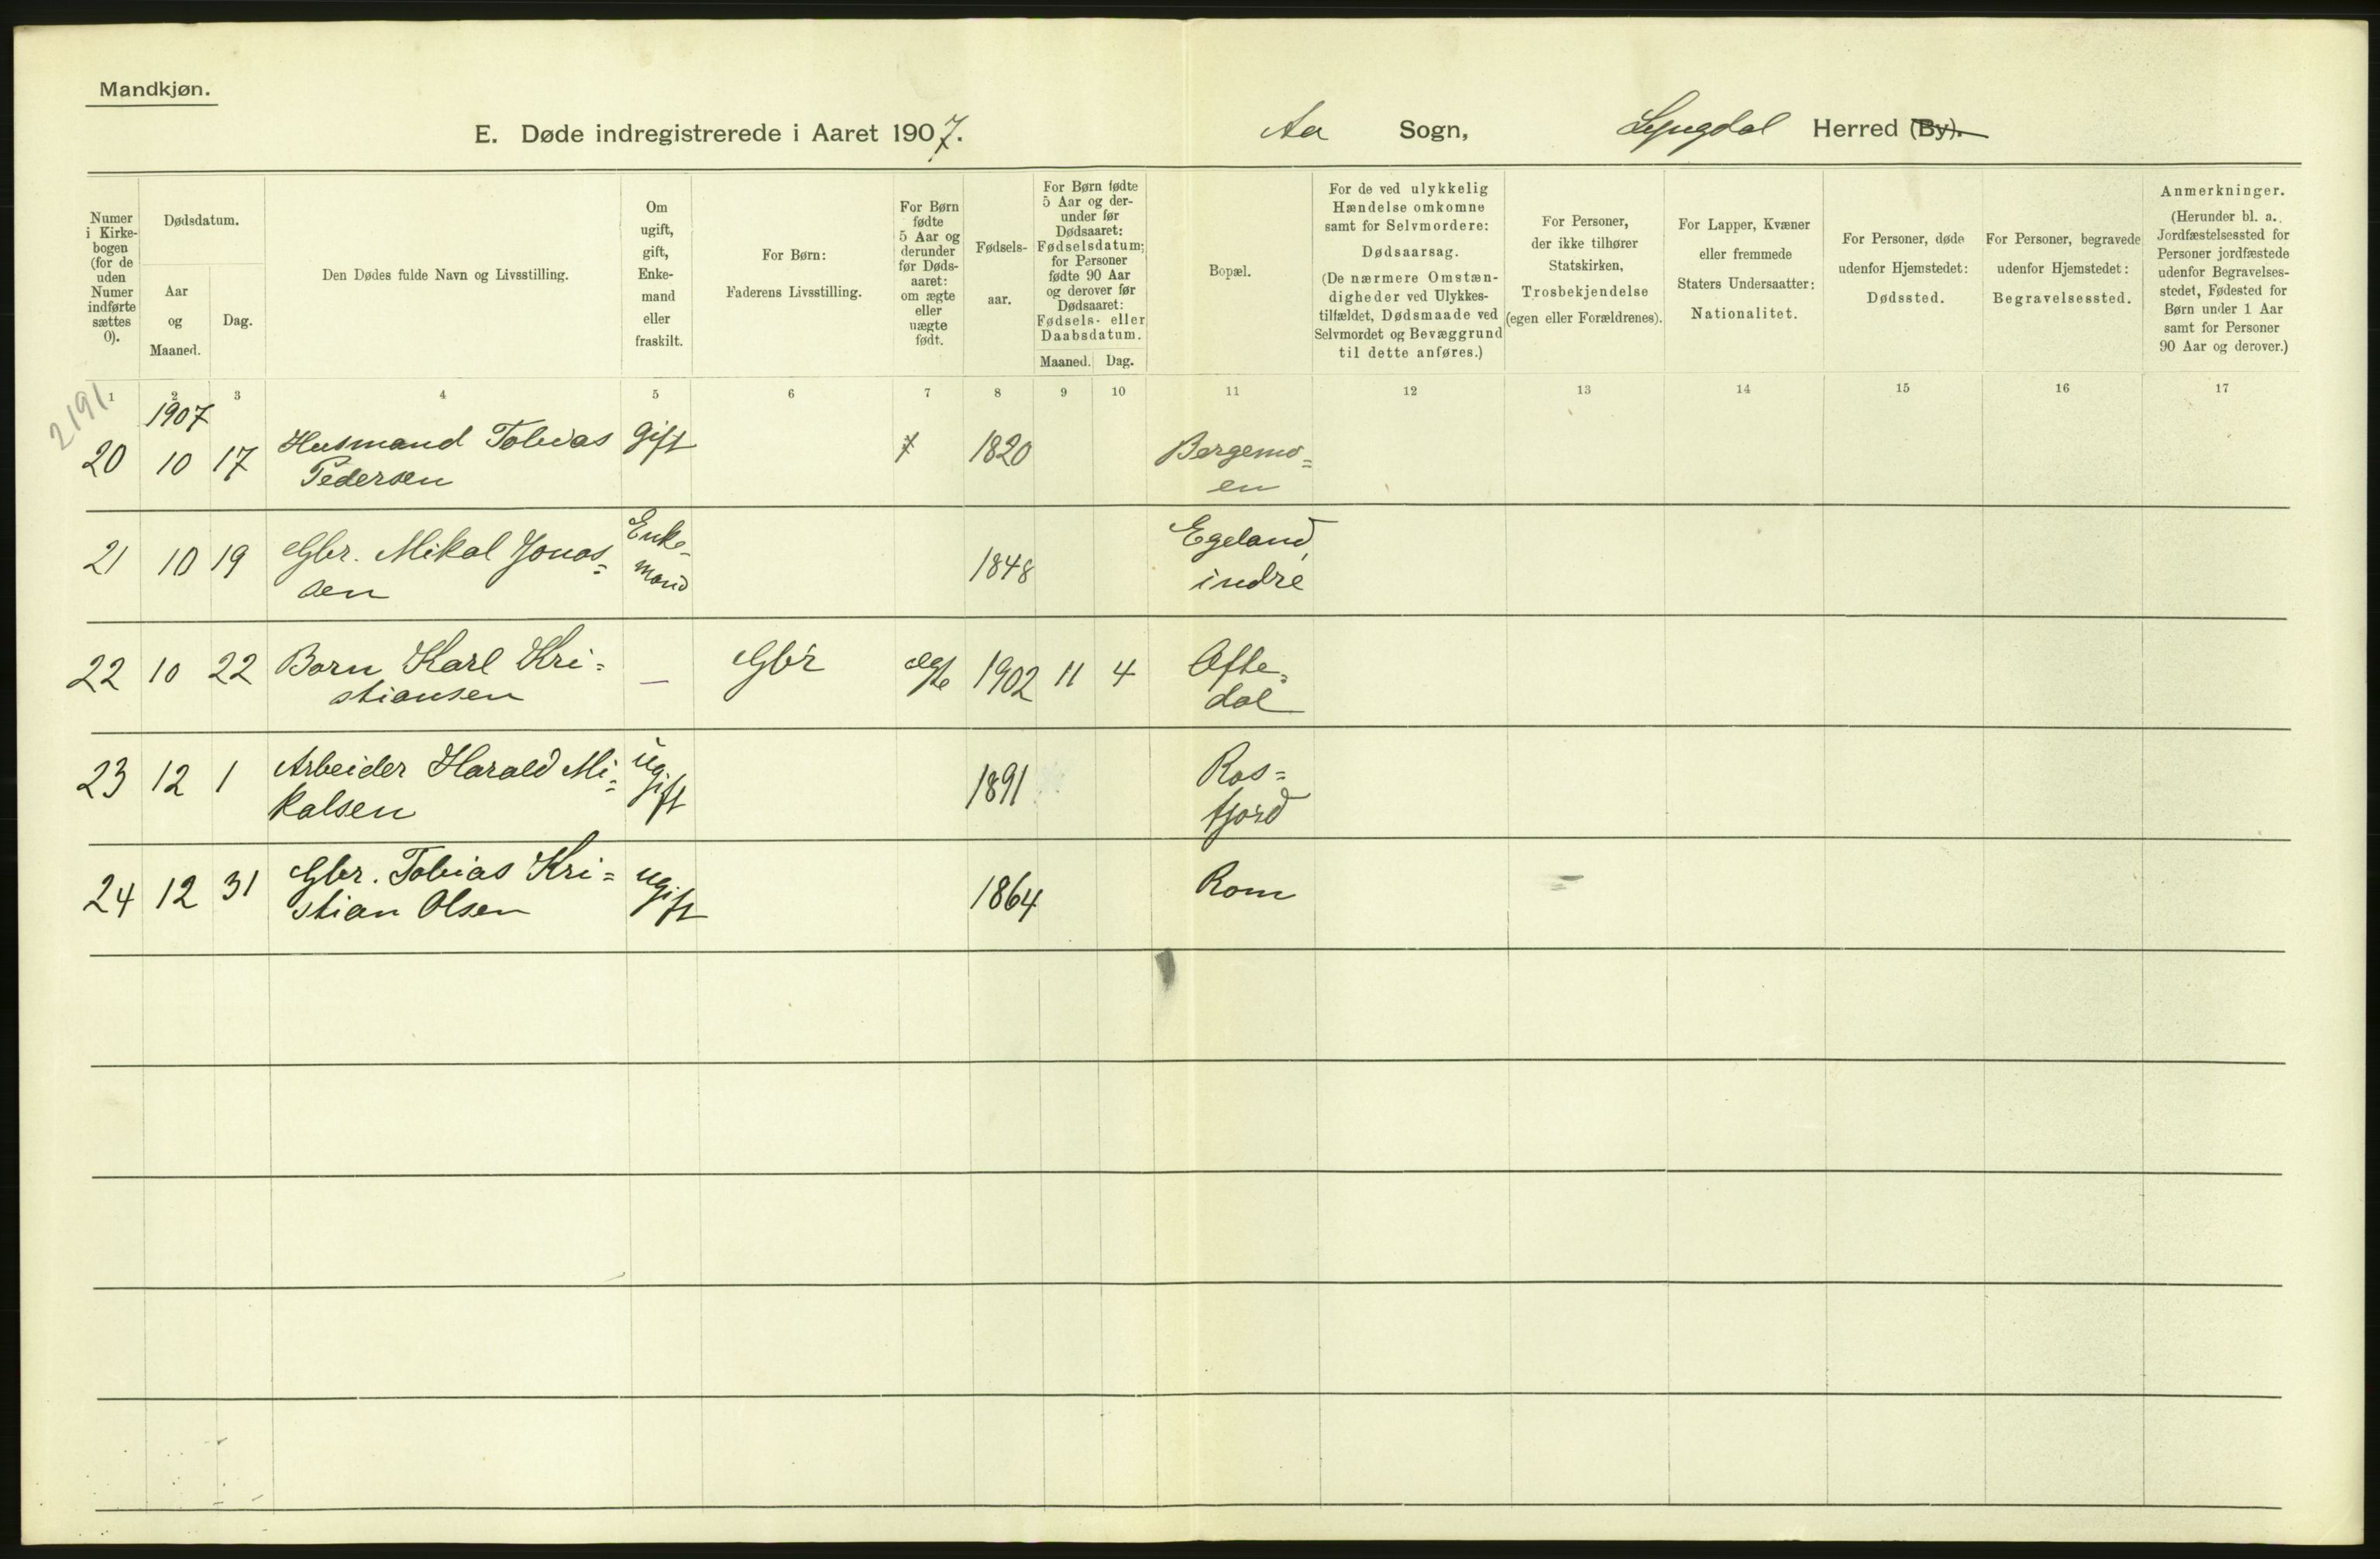 Mandkjøn.
E. Døde indregistrerede i Aaret 1907. Aa Sogn, Lyngdal Herred (By).
Numer i Kirkebogen (for de uden Numer indførte sættes 0).
Dødsdatum.
Aar og Maaned.
Dag.
Den Dødes fulde Navn og Livsstilling.
Om ugift, gift, Enkemand eller fraskilt.
For Børn: Faderens Livsstilling.
For Børn fødte 5 Aar og derunder før Dødsaaret: om ægte eller uægte født.
Fødselsaar.
For Børn fødte 5 Aar og derunder før Dødsaaret: Fødselsdatum; for Personer fødte 90 Aar og derover før Dødsaaret: Fødsels- eller Daabsdatum.
Maaned. Dag.
Bopæl.
For de ved ulykkelig Hændelse omkomne samt for Selvmordere: Dødsaarsag. (De nærmere Omstændigheder ved Ulykkestilfældet, Dødsmaade ved Selvmordet og Bevæggrund til dette anføres.)
For Personer, der ikke tilhører Statskirken, Trosbekjendelse (egen eller Forældrenes).
For Lapper, Kvæner eller fremmede Staters Undersaatter: Nationalitet.
For Personer, døde udenfor Hjemstedet: Dødssted.
For Personer, begravede udenfor Hjemstedet: Begravelsessted.
Anmerkninger. (Herunder bl. a. Jordfæstelsessted for Personer jordfæstede udenfor Begravelsesstedet, Fødested for Børn under 1 Aar samt for Personer 90 Aar og derover.)
1 2 3 4 5 6 7 8 9 10 11 12 13 14 15 16 17
2191
1907
20 10 17 Husmand Tobias gift 1820 Bergemo=
Pedersen en
21 10 19 Gbr. Mikal Jonas= Enke- 1848 Egeland,
sen mand indre
22 10 22 Barn Karl Kri= — Gbr ægte 1902 11 4 Ofte=
stiansen dal
23 12 1 Arbeider Harald Mi= ugift 1891 Ros=
kalsen fjord
24 12 31 Gbr. Tobias Kri= ugift 1864 Rom
stian Olsen